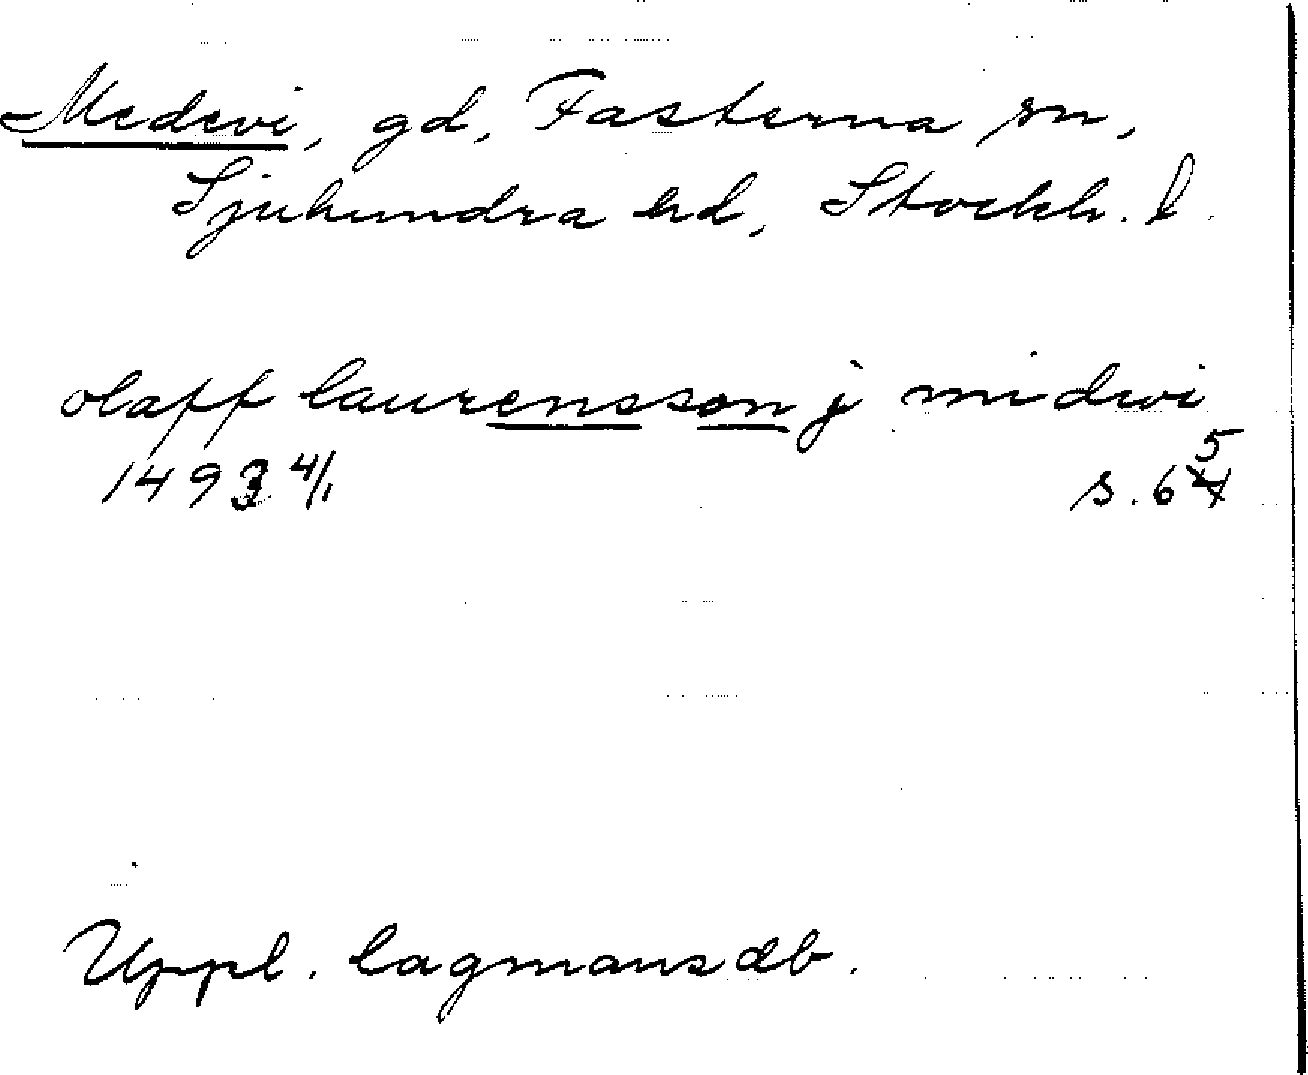 Medevi, gd, Fasterna sn,
Sjuhundra hd, Stockh. l.
olaff laurensson j midwi
1493 4/1 s. 65
Uppl. lagmansdb.